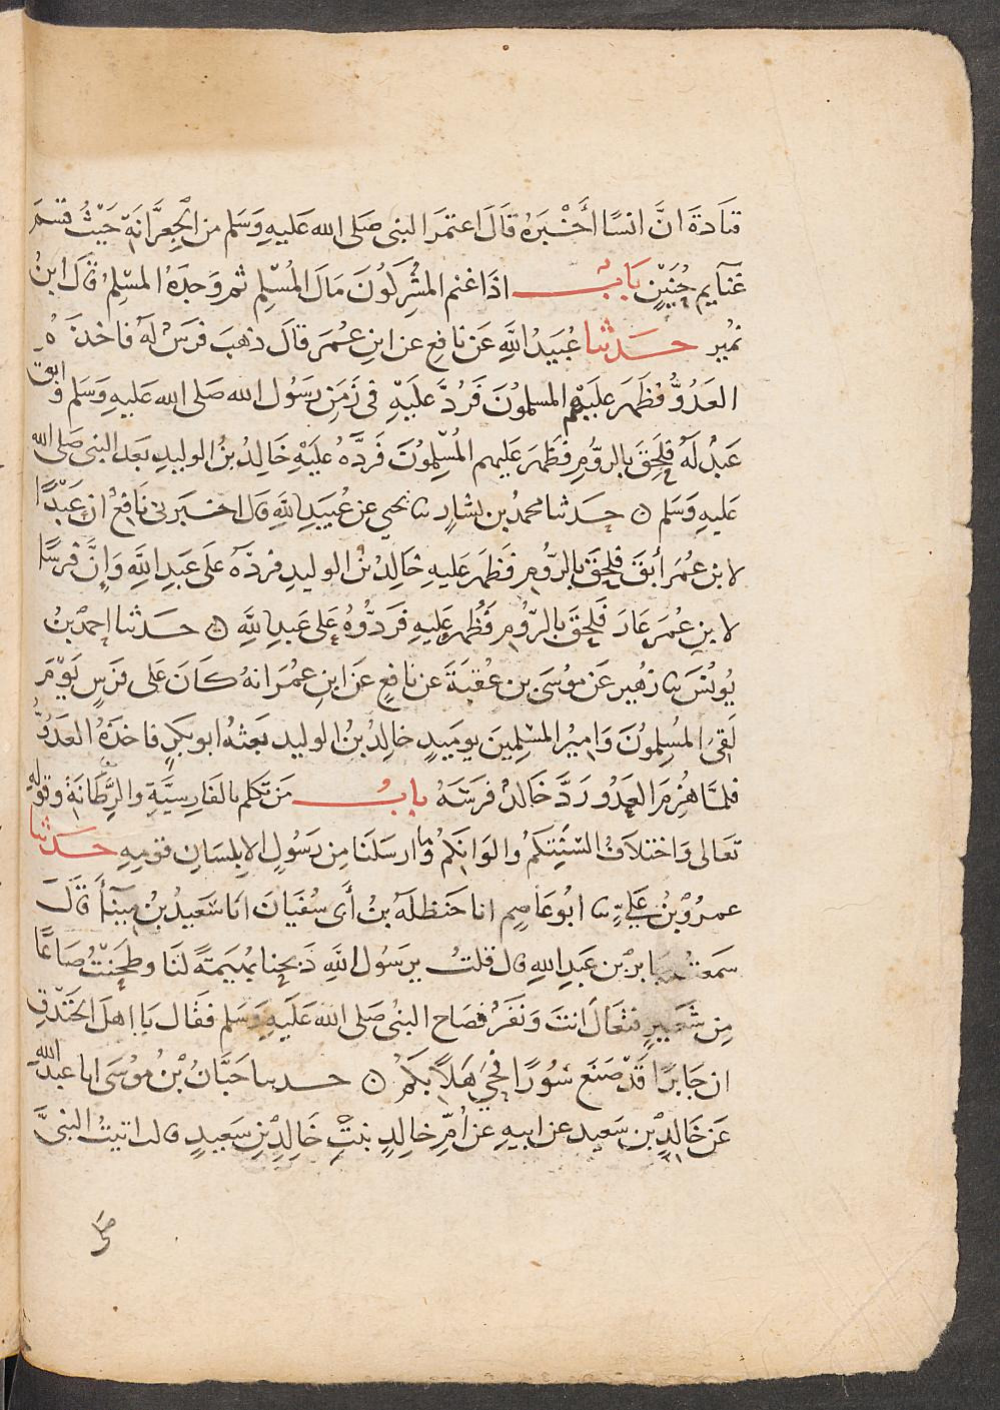 قتادة ان انسا أخبره قال اعتمر النبي صلى الله عليه وسلم من الجعرانة حيث قسم
غنايم حنين باب اذا غنم المشركون مال المسلم ثم وجده المسلم قال ابن
نمير حدثنا عبيد الله عن نافع عن ابن عمر قال ذهب فرس له فاخذه
العدو فظهر عليهم المسلمون فرد عليه في زمن رسول الله صلى الله عليه وسلم وابق
عبد له فلحق بالروم فظهر عليهم المسلمون فرده عليه خالد بن الوليد بعد النبي صلى الله
عليه وسلم ه حدثنا محمد بن بشار ثنا يحيى عن عبيد الله قال اخبرني نافع ان عبدا
لابن عمر أبق فلحق بالروم فظهر عليه خالد بن الوليد فرده على عبد الله وإن فرسا
لابن عمر عار فلحق بالروم فظهر عليه فردوه على عبد الله ه حدثنا احمد بن
يونس ثنا زهير عن موسى بن عقبة عن نافع عن ابن عمر انه كان على فرس يوم
لقي المسلمون وامير المسلمين يوميد خالد بن الوليد بعثه ابو بكر فاخذه العدو
فلما هزم العدو رد خالد فرسه باب من تكلم بالفارسية والرطانة وقوله
تعالى واختلاف السنتكم والوانكم وما ارسلنا من رسول الا بلسان قومه حدثنا
عمرو بن علي ثنا ابو عاصم انا حنظله بن أبي سفيان انا سعيد بن مينأ قال
سمعت جابر بن عبد الله قال قلت يرسول الله ذبحنا بهيمة لنا وطحنت صاعا
من شعير فتعال انت ونفر فصاح النبي صلى الله عليه وسلم فقال يا اهل الخندق
ان جابرا قد صنع سورا فحي هلا بكم ه حدثنا حبان بن موسى انا عبد الله
عن خالد بن سعيد عن ابيه عن أم خالد بنت خالد بن سعيد قالت اتيت النبي
صلى